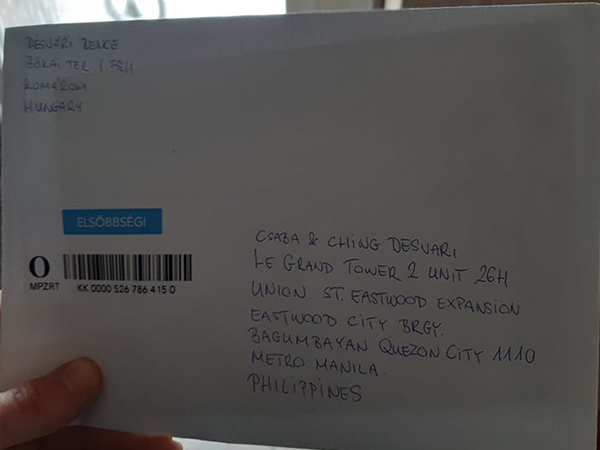 DESVÁRI BENCE
JÓKAI TÉR 1 
KOMÁROM
HUNGARY
ELSŐBBSÉGI
O
MPZRT
KK 0000 526 786 415 0
CSABA & CHING DESVARI
LE GRAND TOWER 2 UNIT 26H
UNION ST. EASTWOOD EXPANSION
EASTWOOD CITY BRGY.
BAGUMBAYAN QUEZON CITY 1110
METRO MANILA.
PHILIPPINES